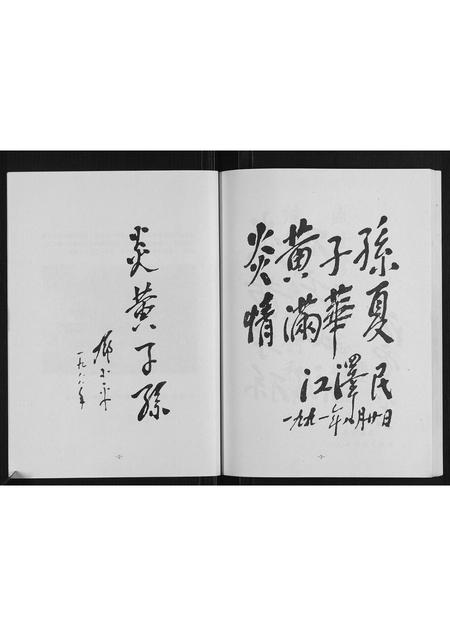 炎黄子孫
鄧小平
一九八八年
炎黄子孫
情滿華夏
江澤民
一九九一年八月廿日